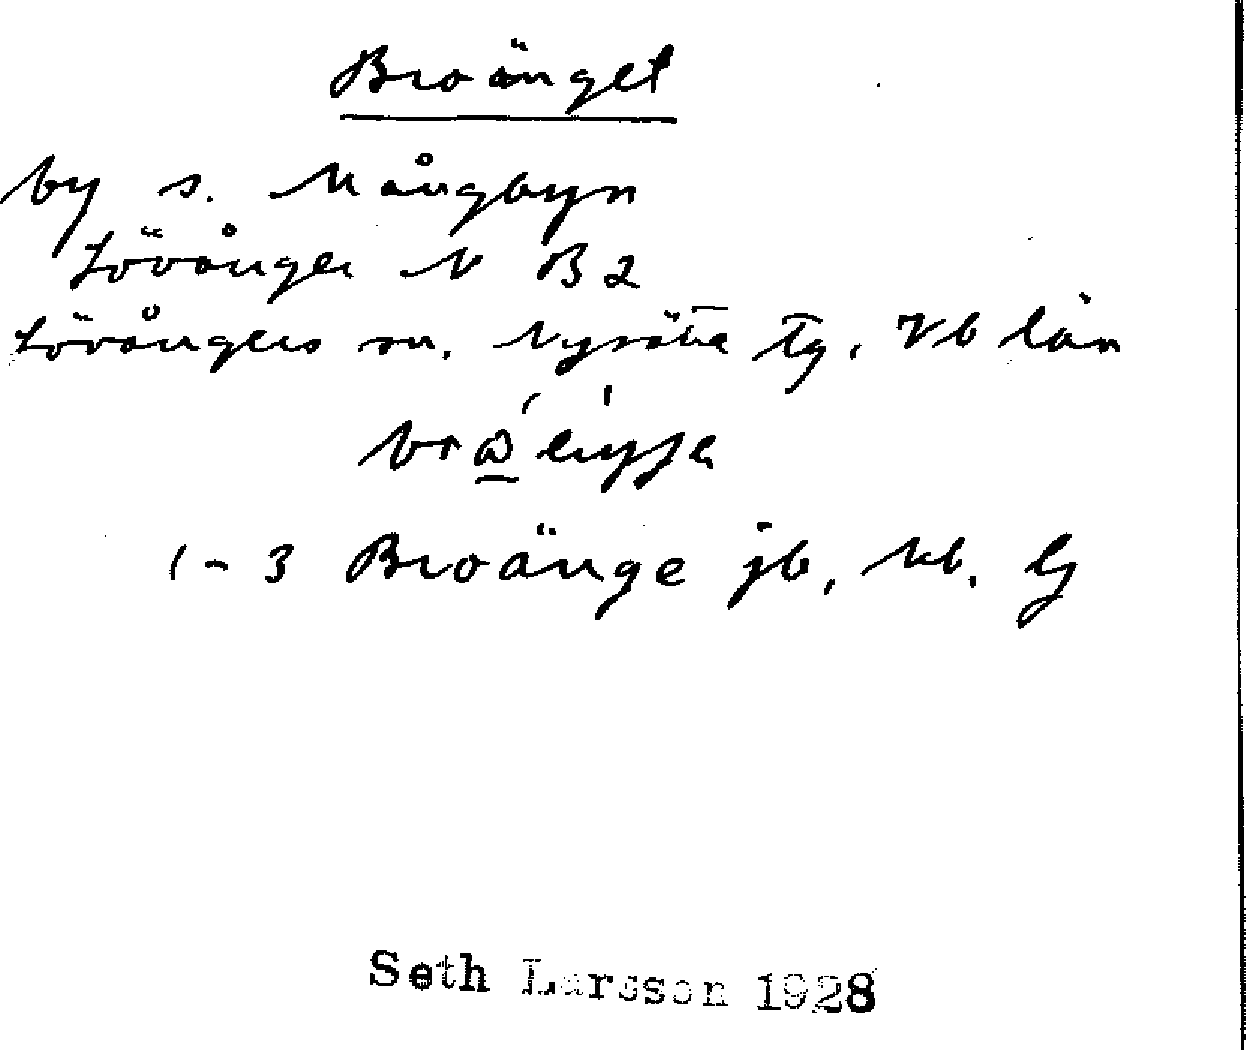 Broänget
by s. Mångbyn
Lövånger N B 2
Lövångers sn. Nysätra tg, Vb län
1-3 Broänge jb, kb. Gj
Seth Larsson 1928